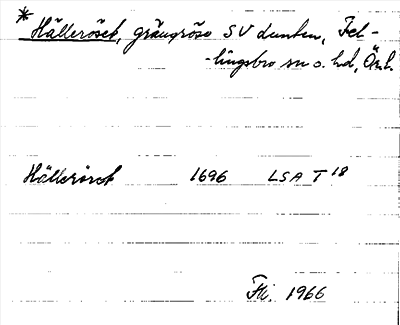 * Hälleröset, gränsröse SV dunken, Fel-
-lingsbro sn o. hd, Önl.
Hälleröret 1696 LSA T 18
Fli. 1966